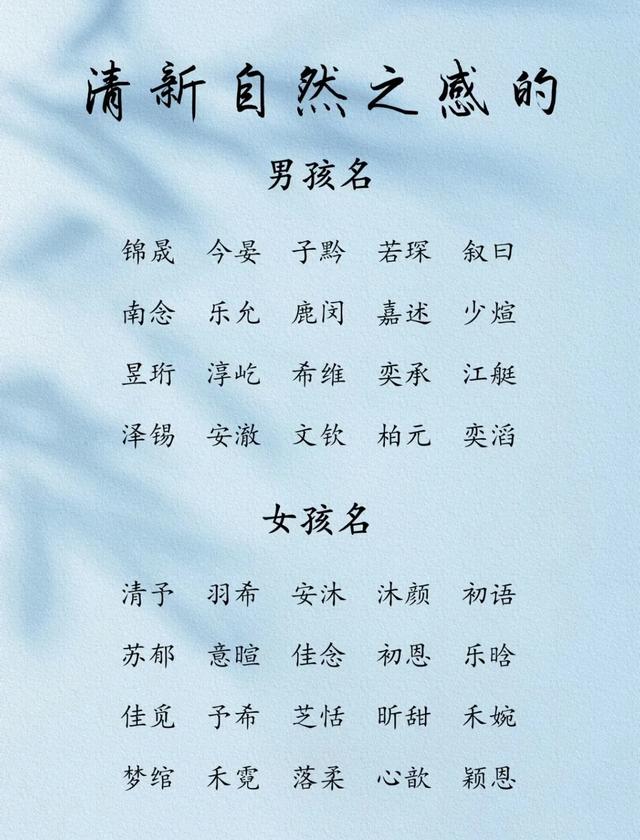 清新自然之感的
男孩名
锦晟 今晏 子黔 若琛 叙曰
南念 乐允 鹿闵 嘉述 少煊
昱珩 淳屹 希维 奕承 江艇
泽锡 安澈 文钦 柏元 奕滔
女孩名
清予 羽希 安沐 沐颜 初语
苏郁 意暄 佳念 初恩 乐晗
佳觅 予希 芝恬 昕甜 禾婉
梦绾 禾霓 落柔 心歆 颖恩